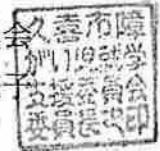 会
子
久喜市障
がい児就学
支援委員会
委員長之印